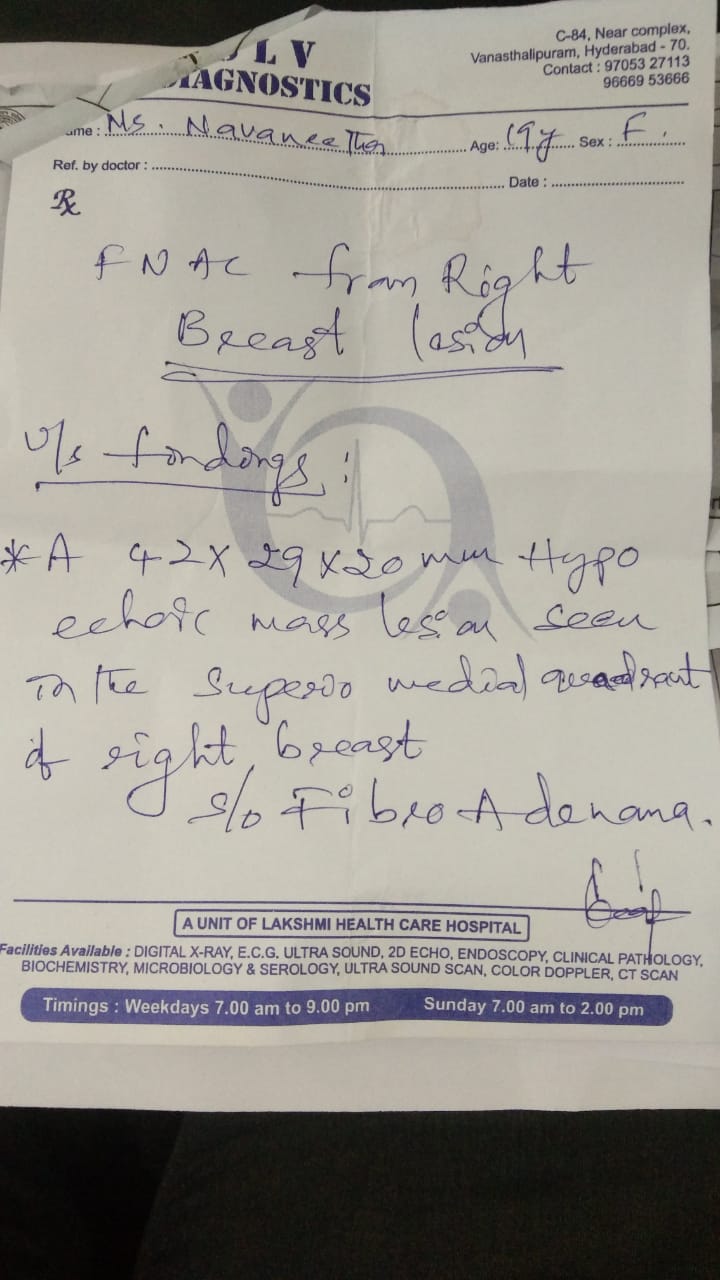 L V
DIAGNOSTICS
C-84, Near complex,
Vanasthalipuram, Hyderabad - 70.
Contact : 97053 27113
96669 53666
ame : Ms. Navaneetha Age: 19y Sex : F.
Ref. by doctor : Date :
Rx
FNAC from Right
Breast lesion
U/s findings :
* A 42 x 29 x 20 mm Hypo
echoic mass lesion seen
in the Superio medial quadrant
of right breast
s/o Fibro Adenama.
A UNIT OF LAKSHMI HEALTH CARE HOSPITAL
Facilities Available : DIGITAL X-RAY, E.C.G. ULTRA SOUND, 2D ECHO, ENDOSCOPY, CLINICAL PATHOLOGY,
BIOCHEMISTRY, MICROBIOLOGY & SEROLOGY, ULTRA SOUND SCAN, COLOR DOPPLER, CT SCAN
Timings : Weekdays 7.00 am to 9.00 pm Sunday 7.00 am to 2.00 pm